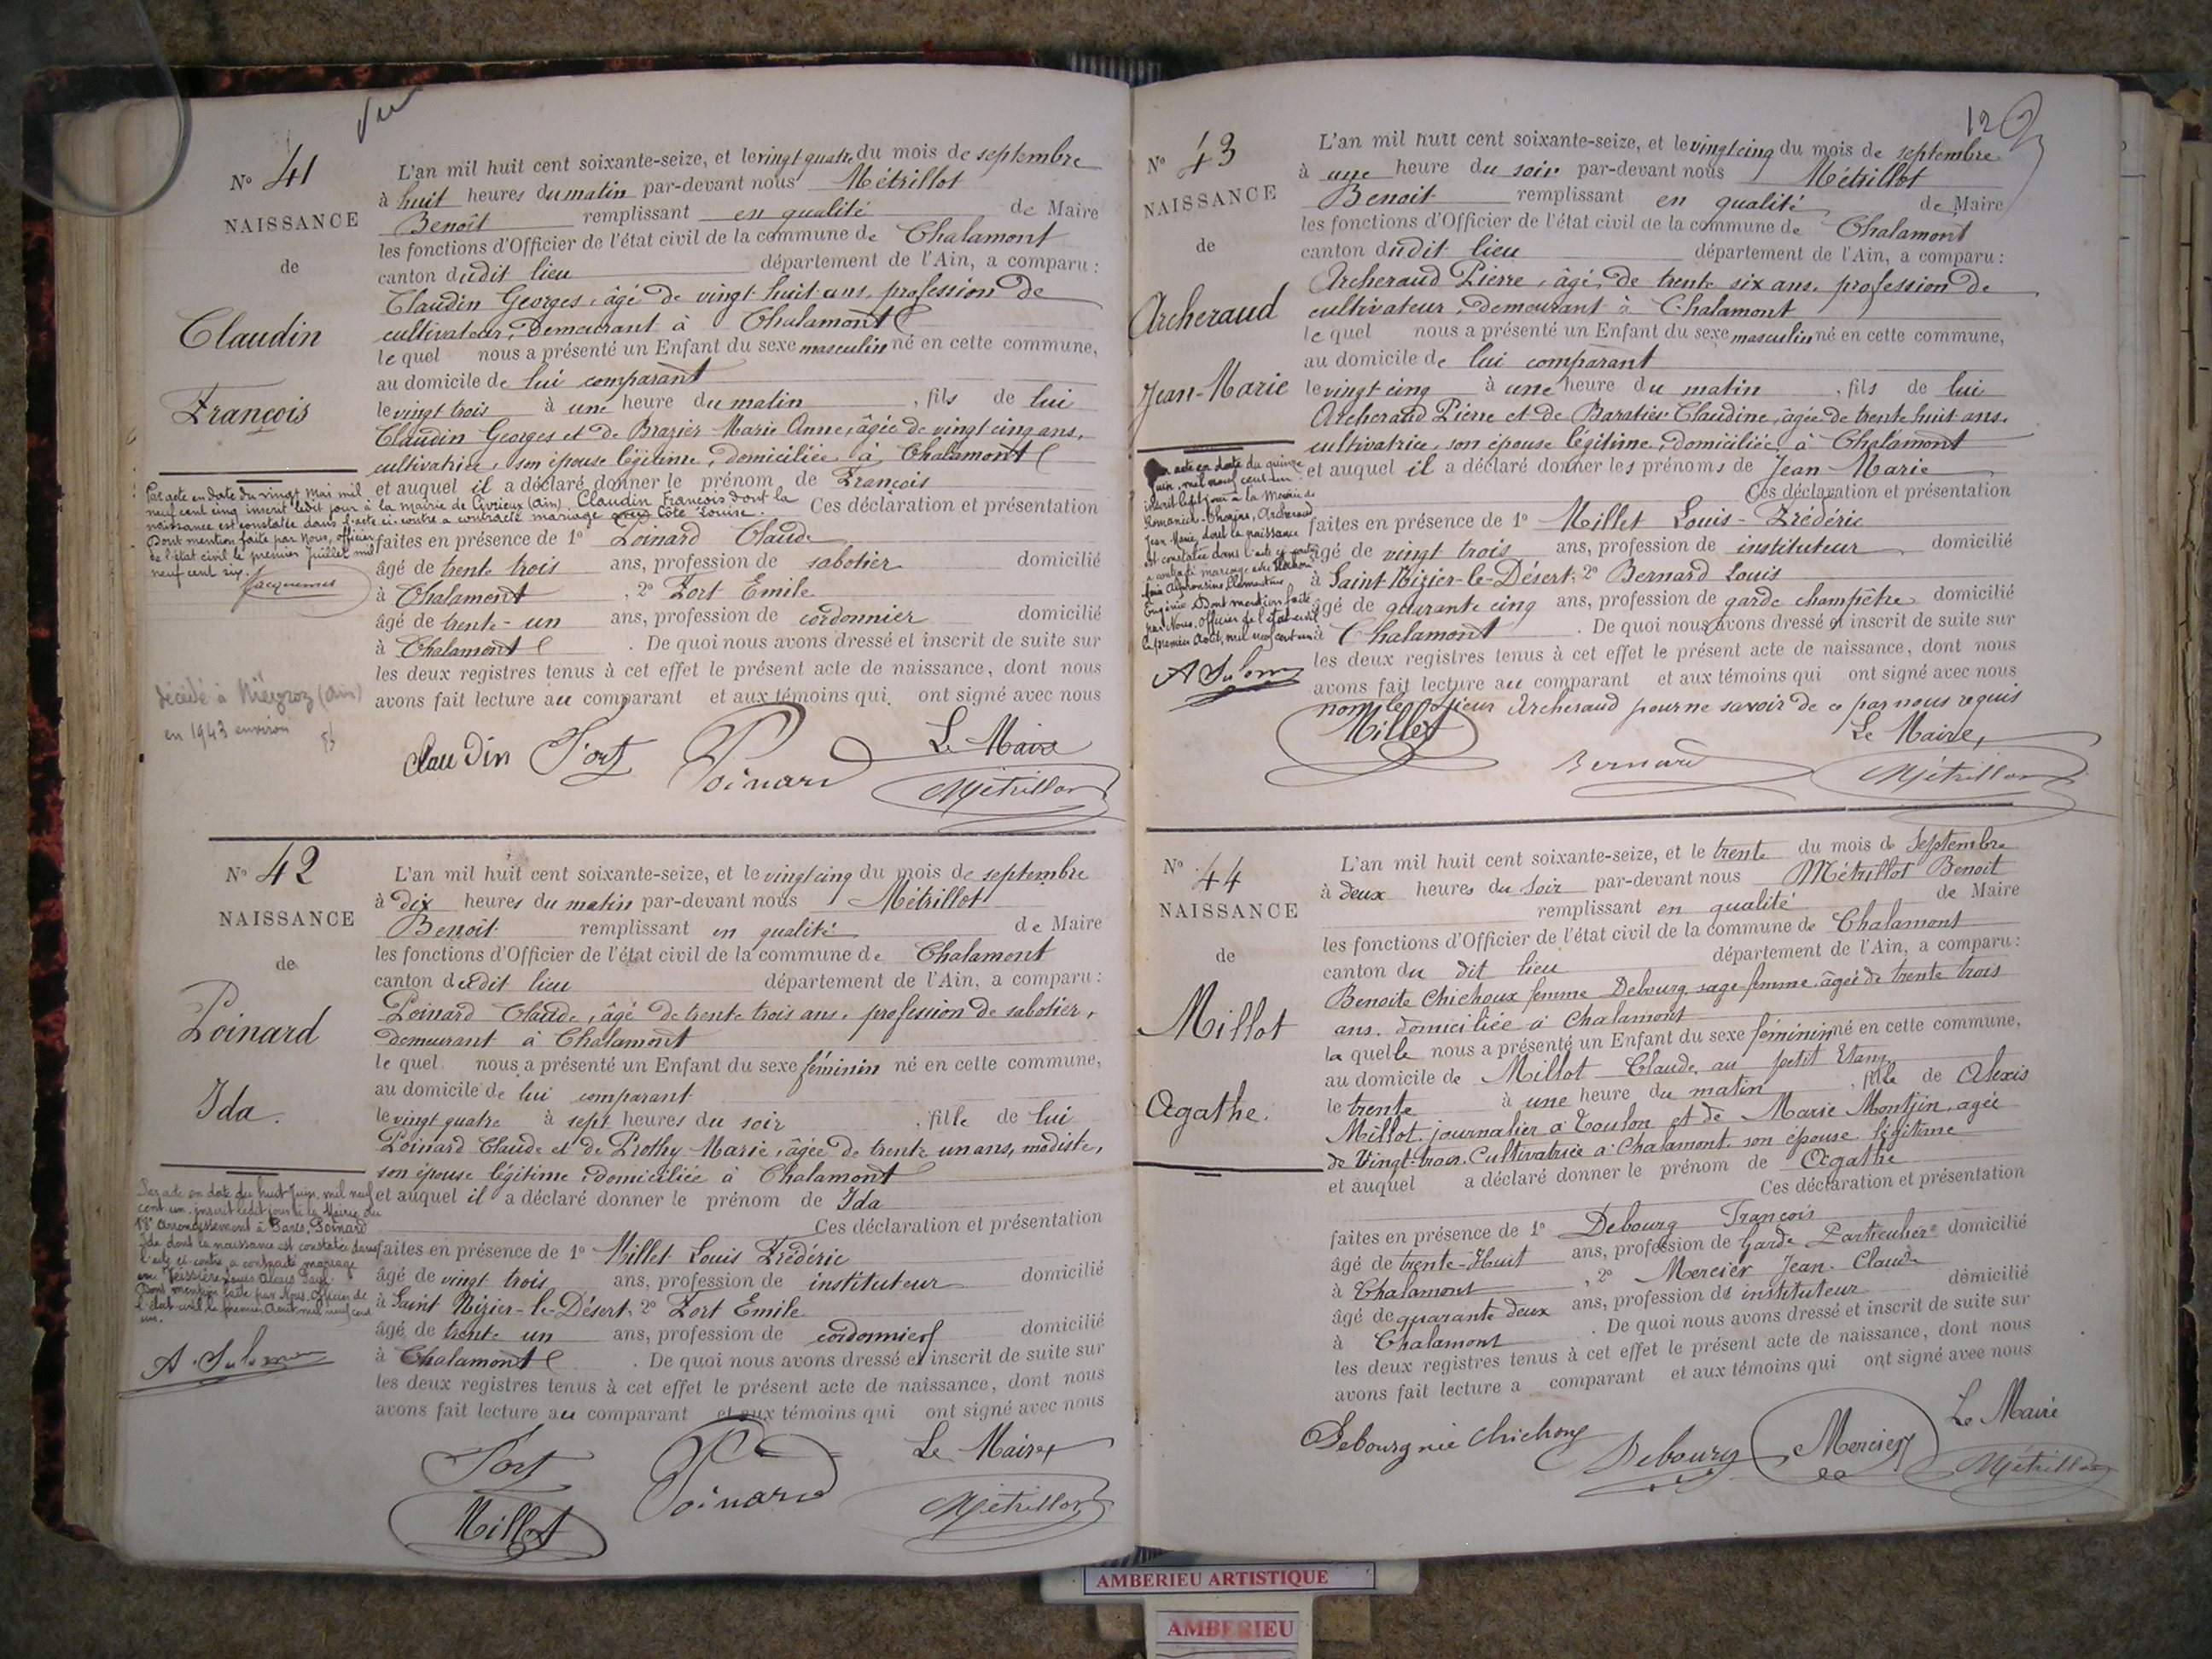 Vu
N° 41
NAISSANCE
de
Claudin
François
L'an mil huit cent soixante-seize, et le vingt quatre du mois de septembre
à huit heures du matin par-devant nous Métrillot
Benoît remplissant en qualité de Maire
les fonctions d'Officier de l'état civil de la commune de Chalamont
canton dudit lieu département de l'Ain, a comparu :
Claudin Georges, âgé de vingt huit ans, profession de
cultivateur, demeurant à Chalamont
le quel nous a présenté un Enfant du sexe masculin né en cette commune,
au domicile de lui comparant
le vingt trois à une heure du matin, fils de lui
Claudin Georges et de Brazier Marie Anne, âgée de vingt cinq ans,
cultivatrice, son épouse légitime, domiciliée à Chalamont
et auquel il a déclaré donner le prénom de François
Ces déclaration et présentation
faites en présence de 1° Poinard Claude
âgé de trente trois ans, profession de sabotier domicilié
à Chalamont, 2° Fort Emile
âgé de trente-un ans, profession de cordonnier domicilié
à Chalamont. De quoi nous avons dressé et inscrit de suite sur
les deux registres tenus à cet effet le présent acte de naissance, dont nous
avons fait lecture au comparant et aux témoins qui ont signé avec nous
Par acte en date du vingt mai mil
neuf cent cinq inscrit ledit jour à la mairie de Civrieux (Ain) Claudin François dont la
naissance est constatée dans l'acte ci-contre a contracté mariage avec Côte Louise.
Dont mention faite par Nous, officier
de l'état civil le premier Juillet mil
neuf cent six.
Jacquemet
décédé à (Ain)
en 1943 environ
Claudin Fort Poinard Le Maire
Métrillot
N° 42
NAISSANCE
de
Poinard
Ida.
L'an mil huit cent soixante-seize, et le vingt cinq du mois de septembre
à dix heures du matin par-devant nous Métrillot
Benoit remplissant en qualité de Maire
les fonctions d'Officier de l'état civil de la commune de Chalamont
canton dudit lieu département de l'Ain, a comparu :
Poinard Claude, âgé de trente trois ans, profession de sabotier,
demeurant à Chalamont
le quel nous a présenté un Enfant du sexe féminin né en cette commune,
au domicile de lui comparant
le vingt quatre à sept heures du soir, fille de lui
Poinard Claude et de Prothy Marie, âgée de trente un ans, modiste,
son épouse légitime, domiciliée à Chalamont
et auquel il a déclaré donner le prénom de Ida
Ces déclaration et présentation
faites en présence de 1° Millet Louis Frédéric
âgé de vingt trois ans, profession de instituteur domicilié
à Saint Nizier-le-Désert, 2° Fort Emile
âgé de trente un ans, profession de cordonnier domicilié
à Chalamont. De quoi nous avons dressé et inscrit de suite sur
les deux registres tenus à cet effet le présent acte de naissance, dont nous
avons fait lecture au comparant et aux témoins qui ont signé avec nous
Par acte en date du huit Juin mil neuf
cent un inscrit ledit jour à la Mairie du
18e arrondissement à Paris, Poinard
Ida dont la naissance est constatée dans
l'acte ci-contre a contracté mariage
Louis Alexis
Dont mention faite par Nous, Officier de
l'état civil le premier Aout mil neuf cent
un.
A. Salomon
Fort Poinard Le Maire
Millet Métrillot
12
N° 43
NAISSANCE
de
Archeraud
Jean-Marie
L'an mil huit cent soixante-seize, et le vingt cinq du mois de septembre
à une heure du soir par-devant nous Métrillot
Benoit remplissant en qualité de Maire
les fonctions d'Officier de l'état civil de la commune de Chalamont
canton dudit lieu département de l'Ain, a comparu :
Archeraud Pierre, âgé de trente six ans, profession de
cultivateur, demeurant à Chalamont
le quel nous a présenté un Enfant du sexe masculin né en cette commune,
au domicile de lui comparant
le vingt cinq à une heure du matin, fils de lui
Archeraud Pierre et de Baratier Claudine, âgée de trente huit ans,
cultivatrice, son épouse légitime, domiciliée à Chalamont
et auquel il a déclaré donner les prénoms de Jean-Marie
Ces déclaration et présentation
faites en présence de 1° Millet Louis-Frédéric
âgé de vingt trois ans, profession de instituteur domicilié
à Saint Nizier-le-Désert, 2° Bernard Louis
âgé de quarante cinq ans, profession de garde champêtre domicilié
à Chalamont. De quoi nous avons dressé et inscrit de suite sur
les deux registres tenus à cet effet le présent acte de naissance, dont nous
avons fait lecture au comparant et aux témoins qui ont signé avec nous
non le sieur Archeraud pour ne savoir de ce par nous requis
acte en date du quinze
Juin mil neuf cent un
inscrit ledit jour à la Mairie de
Romanèche-Thorins, Archeraud
Jean Marie, dont la naissance
est constatée dans l'acte ci-contre
a contracté mariage avec
Alphonsine Clémentine
Eugénie. Dont mention faite
par Nous, Officier de l'état civil
le premier Août mil neuf cent un
A Salomon
Millet Bernard Le Maire,
Métrillot
N° 44
NAISSANCE
de
Millot
Agathe.
L'an mil huit cent soixante-seize, et le trente du mois de Septembre
à deux heures du soir par-devant nous Métrillot Benoit
remplissant en qualité de Maire
les fonctions d'Officier de l'état civil de la commune de Chalamont
canton du dit lieu département de l'Ain, a comparu :
Benoite Chichoux femme Debourg, sage-femme, âgée de trente trois
ans, domiciliée à Chalamont
la quelle nous a présenté un Enfant du sexe féminin né en cette commune,
au domicile de Millot Claude, au petit Etang
le trente à une heure du matin, fille de Alexis
Millot, journalier à Toulon et de Marie Montjin, agée
de Vingt-trois, Cultivatrice à Chalamont, son épouse légitime
et auquel a déclaré donner le prénom de Agathe
Ces déclaration et présentation
faites en présence de 1° Debourg François
âgé de trente-Huit ans, profession de Garde Particulier domicilié
à Chalamont, 2° Mercier Jean-Claude
âgé de quarante deux ans, profession de instituteur domicilié
à Chalamont. De quoi nous avons dressé et inscrit de suite sur
les deux registres tenus à cet effet le présent acte de naissance, dont nous
avons fait lecture a comparant et aux témoins qui ont signé avec nous
Debourg née Chichoux Debourg Mercier Le Maire
Métrillot
AMBERIEU ARTISTIQUE
AMBERIEU